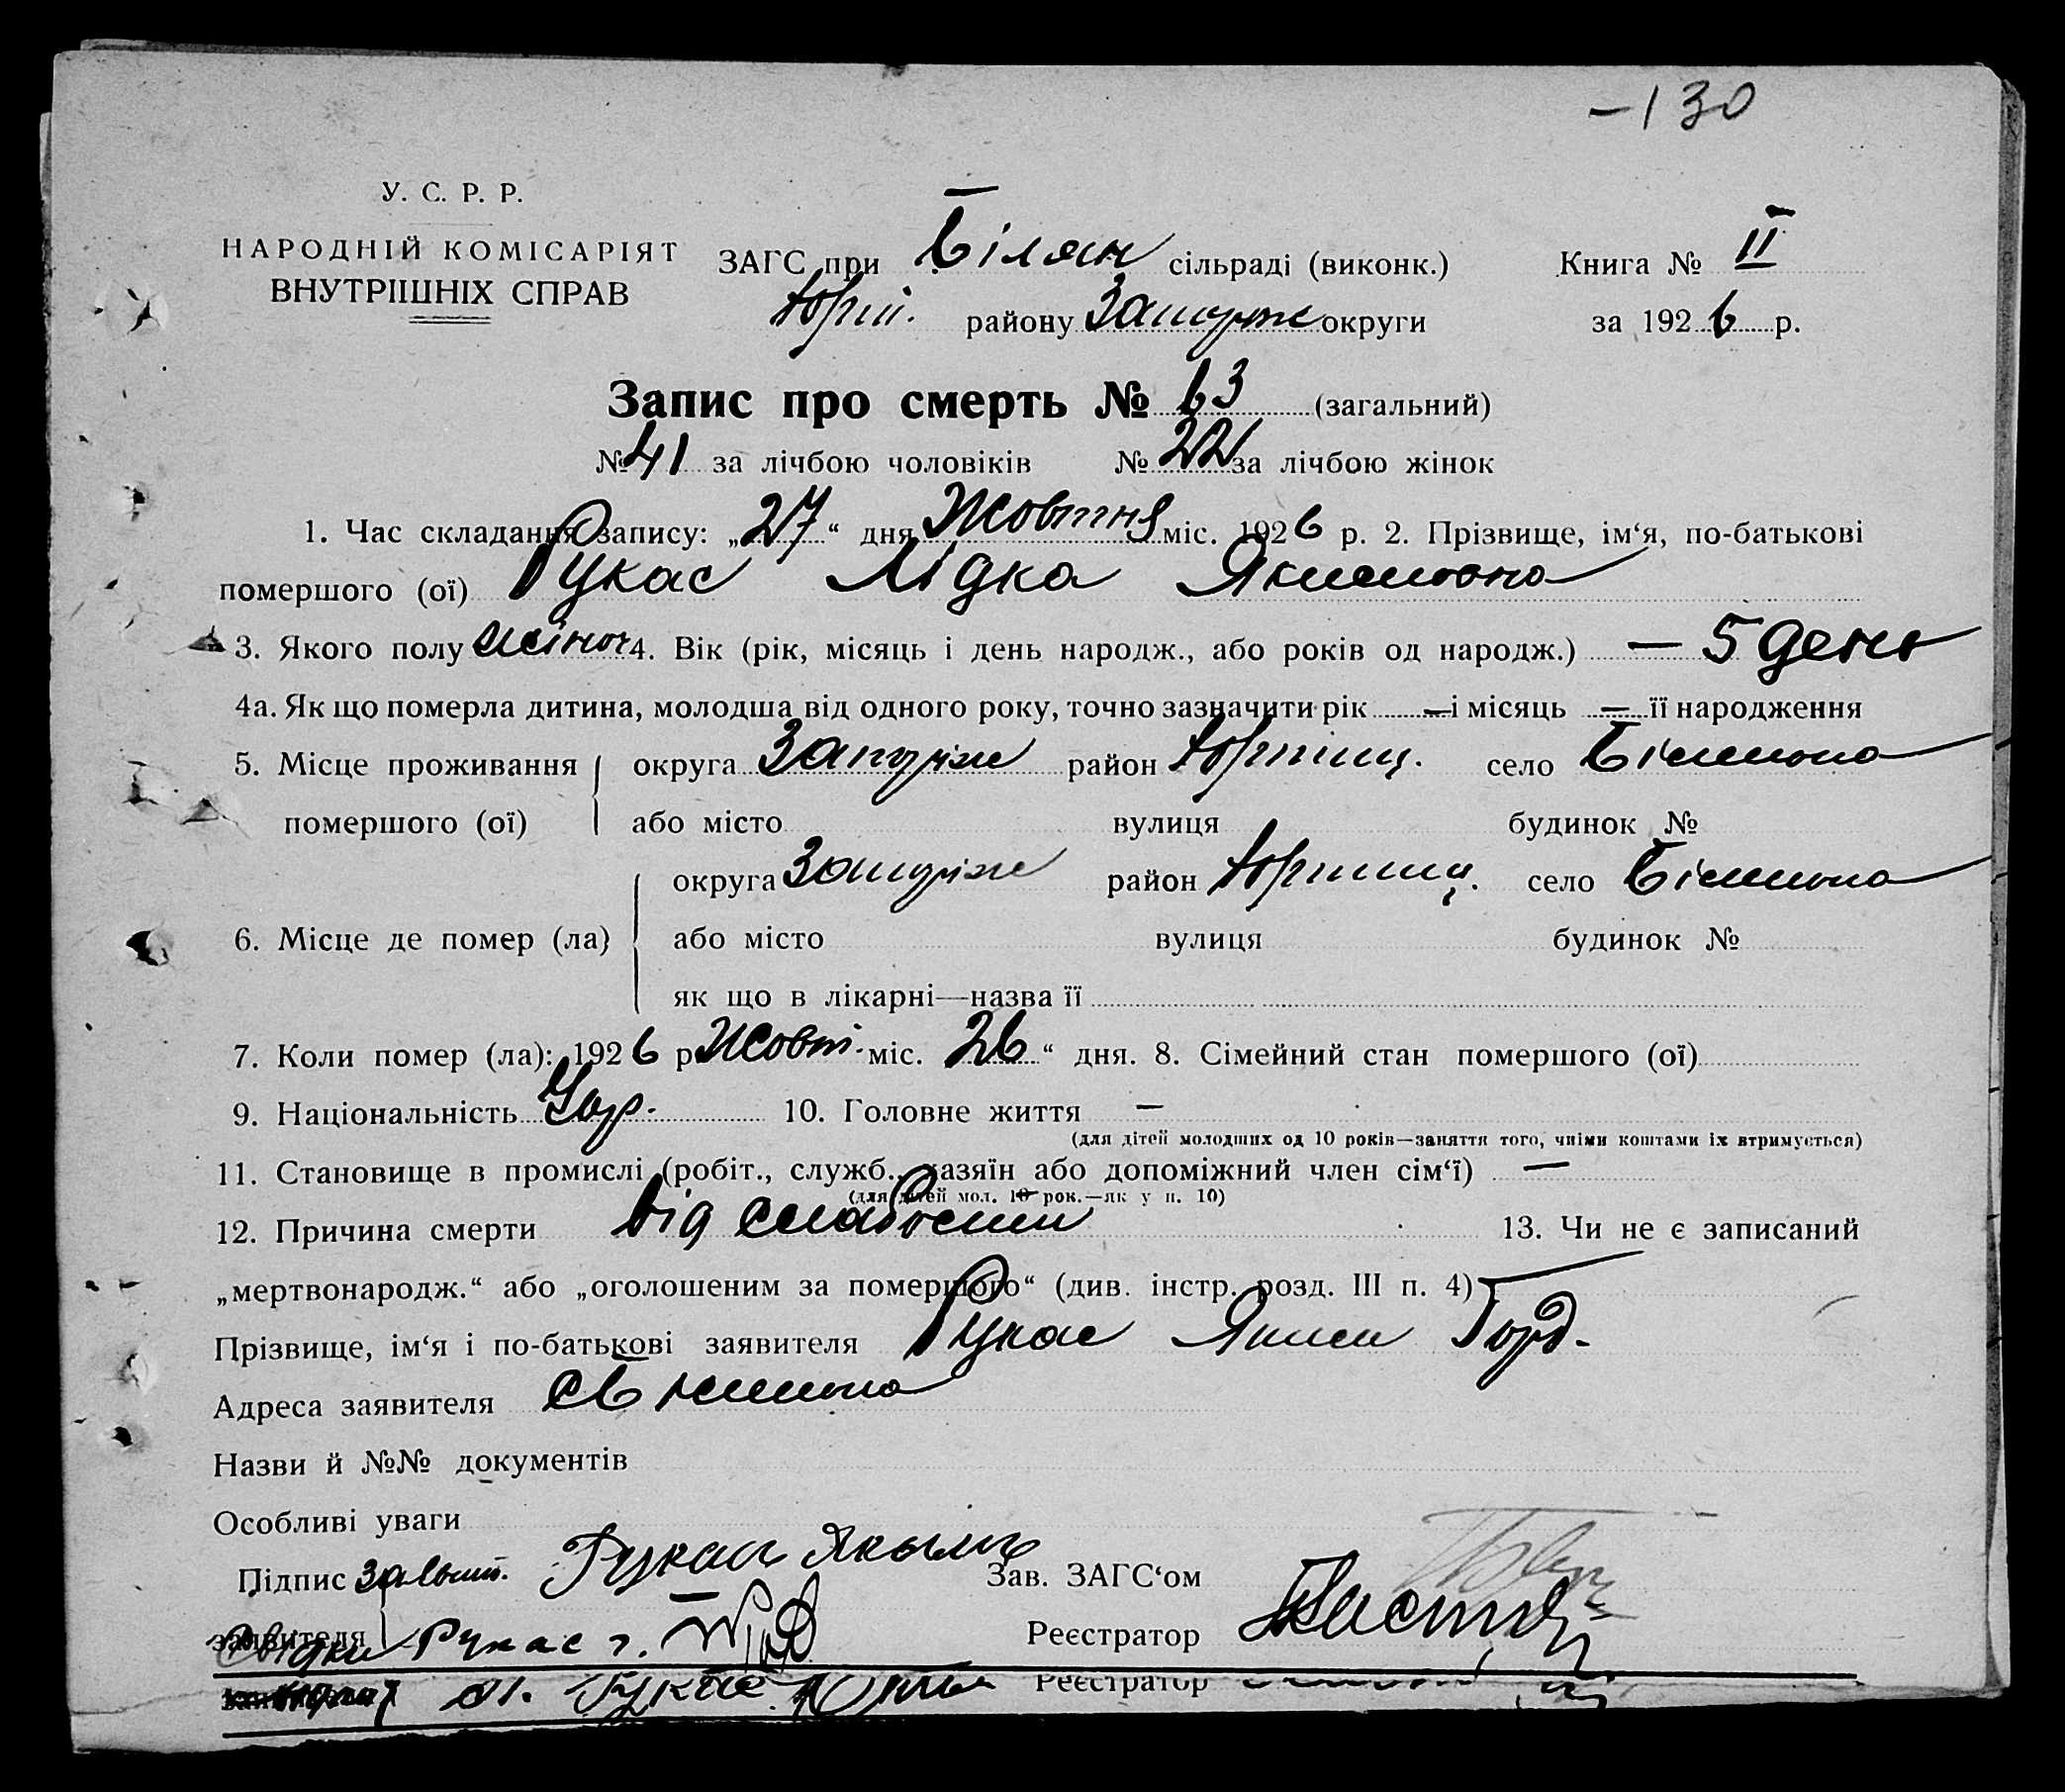 -130
У. С. Р. Р.
НАРОДНІЙ КОМІСАРІЯТ
ВНУТРІШНІХ СПРАВ
ЗАГС при Білян сільраді (виконк.) Книга № II
району округи за 1926 р.
Запис про смерть № 63 (загальний)
№ 41 за лічбою чоловіків № 22 за лічбою жінок
1. Час складання запису: „27“ дня Жовтня міс. 1926 р. 2. Прізвище, ім‘я, по-батькові
помершого (ої) Рукас Лідка Якимовна
3. Якого полу жіноч 4. Вік (рік, місяць і день народж., або років од народж.) — 5 день
4а. Як що померла дитина, молодша від одного року, точно зазначити рік — і місяць — її народження
5. Місце проживання округа Запоріже район село
помершого (ої) або місто вулиця будинок №
округа Запоріже район село
6. Місце де помер (ла) або місто вулиця будинок №
як що в лікарні—назва її
7. Коли помер (ла): 1926 р Жовт. міс. 26“ дня. 8. Сімейний стан помершого (ої)
9. Національність Укр. 10. Головне життя —
(для дітей молодших од 10 років—заняття того, чиїми коштами їх втримується)
11. Становище в промислі (робіт., служб., хазяїн або допоміжний член сім‘ї) —
(для дітей мол. 10 рок.—як у п. 10)
12. Причина смерти від слабости 13. Чи не є записаний
„мертвонародж.“ або „оголошеним за помершого“ (див. інстр. розд. III п. 4)
Прізвище, ім‘я і по-батькові заявителя Рукас Яким Горд.
Адреса заявителя
Назви й №№ документів
Особливі уваги
Підпис Рукас Якым Зав. ЗАГС‘ом
заявителя Свідки Рукас г. Реєстратор
Рукас Реєстратор